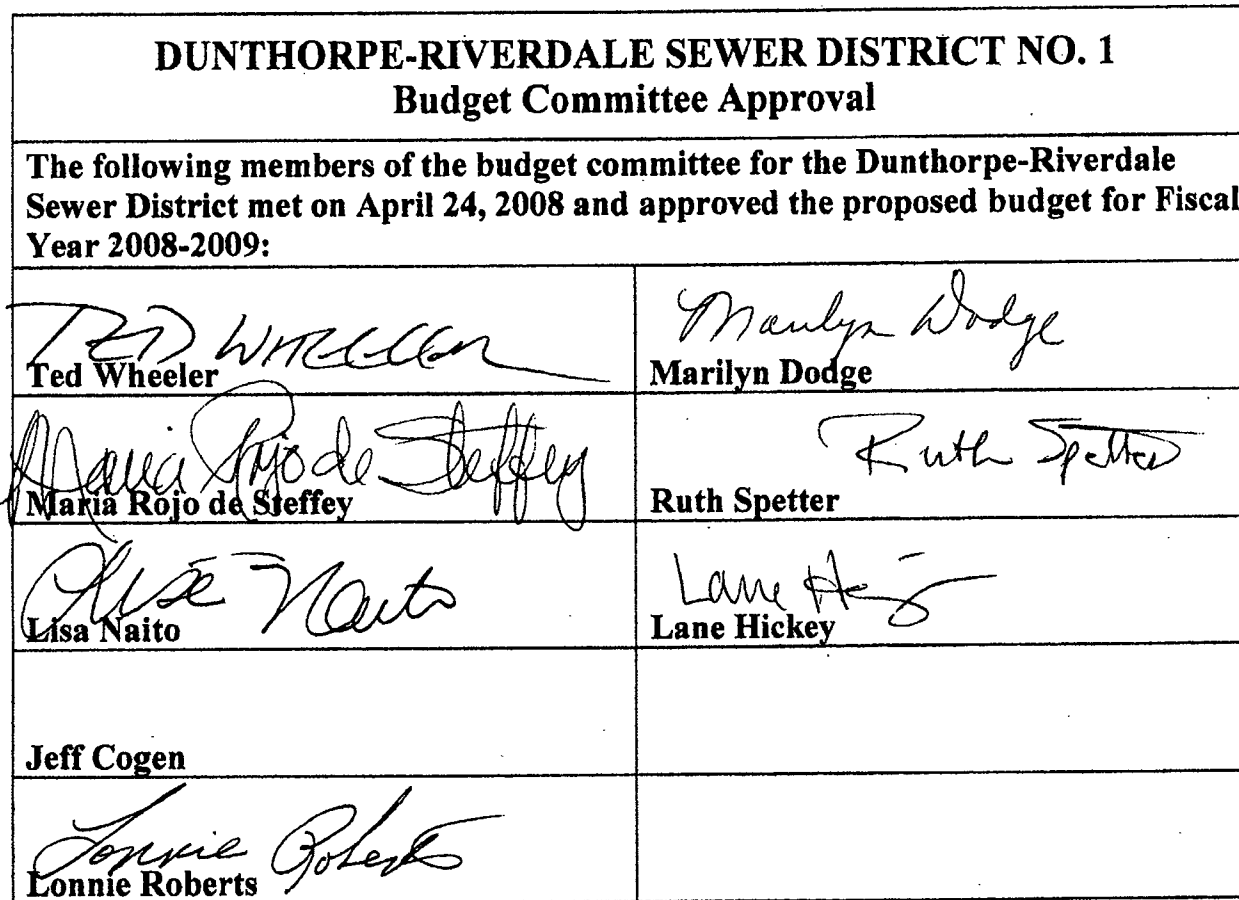 DUNTHORPE-RIVERDALE SEWER DISTRICT NO. 1
Budget Committee Approval
The following members of the budget committee for the Dunthorpe-Riverdale
Sewer District met on April 24, 2008 and approved the proposed budget for Fiscal
Year 2008-2009:
TED WHEELER
Ted Wheeler
Marilyn Dodge
Marilyn Dodge
Maria Rojo de Steffey
Maria Rojo de Steffey
Ruth Spetter
Ruth Spetter
Lisa Naito
Lisa Naito
Lane
Lane Hickey
Jeff Cogen
Lonnie Roberts
Lonnie Roberts